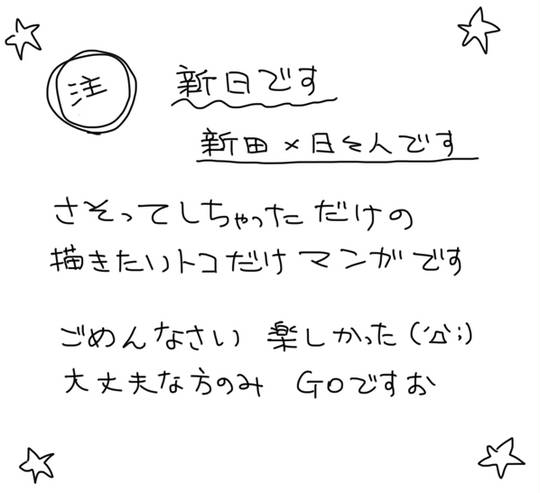 注
新日です
新田×日々人です
さそってしちゃっただけの
描きたいトコだけマンガです
ごめんなさい 楽しかった(´Д`;)
大丈夫な方のみ GOですお